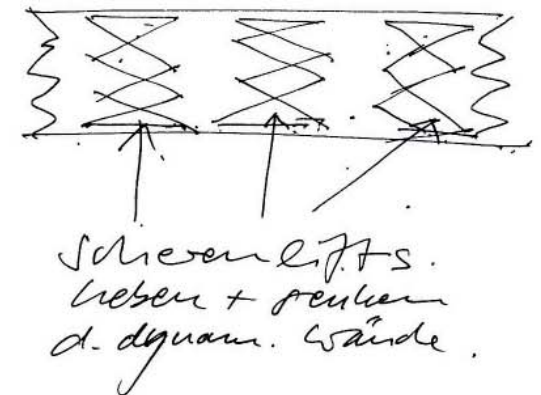 Scherenlifts.
heben + senken
d. dynam. Wände.